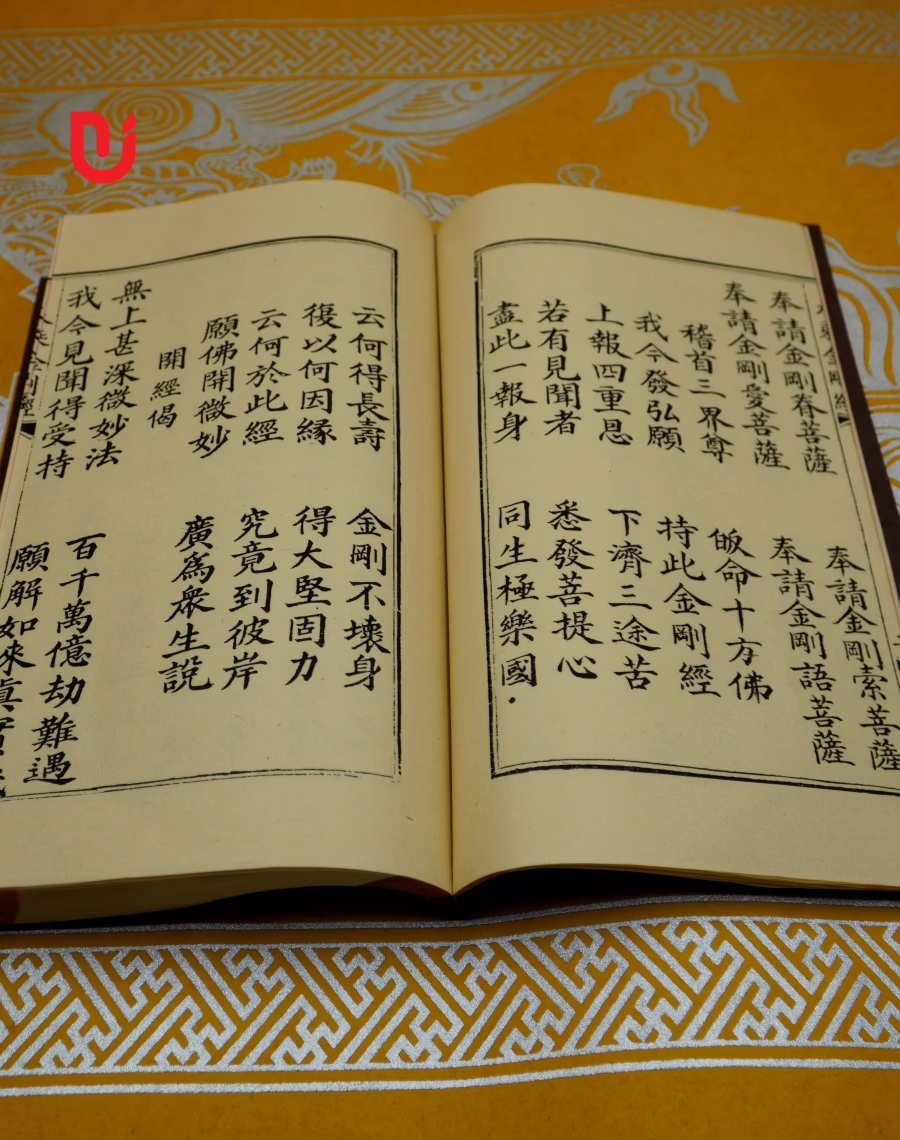 奉請金剛眷菩薩　奉請金剛索菩薩
奉請金剛愛菩薩　奉請金剛語菩薩
稽首三界尊　皈命十方佛
我今發弘願　持此金剛經
上報四重恩　下濟三途苦
若有見聞者　悉發菩提心
盡此一報身　同生極樂國.
云何得長壽　金剛不壞身
復以何因緣　得大堅固力
云何於此經　究竟到彼岸
願佛開微妙　廣爲衆生說
開經偈
無上甚深微妙法　百千萬億劫難遇
我今見聞得受持　願解如來眞實
金剛經